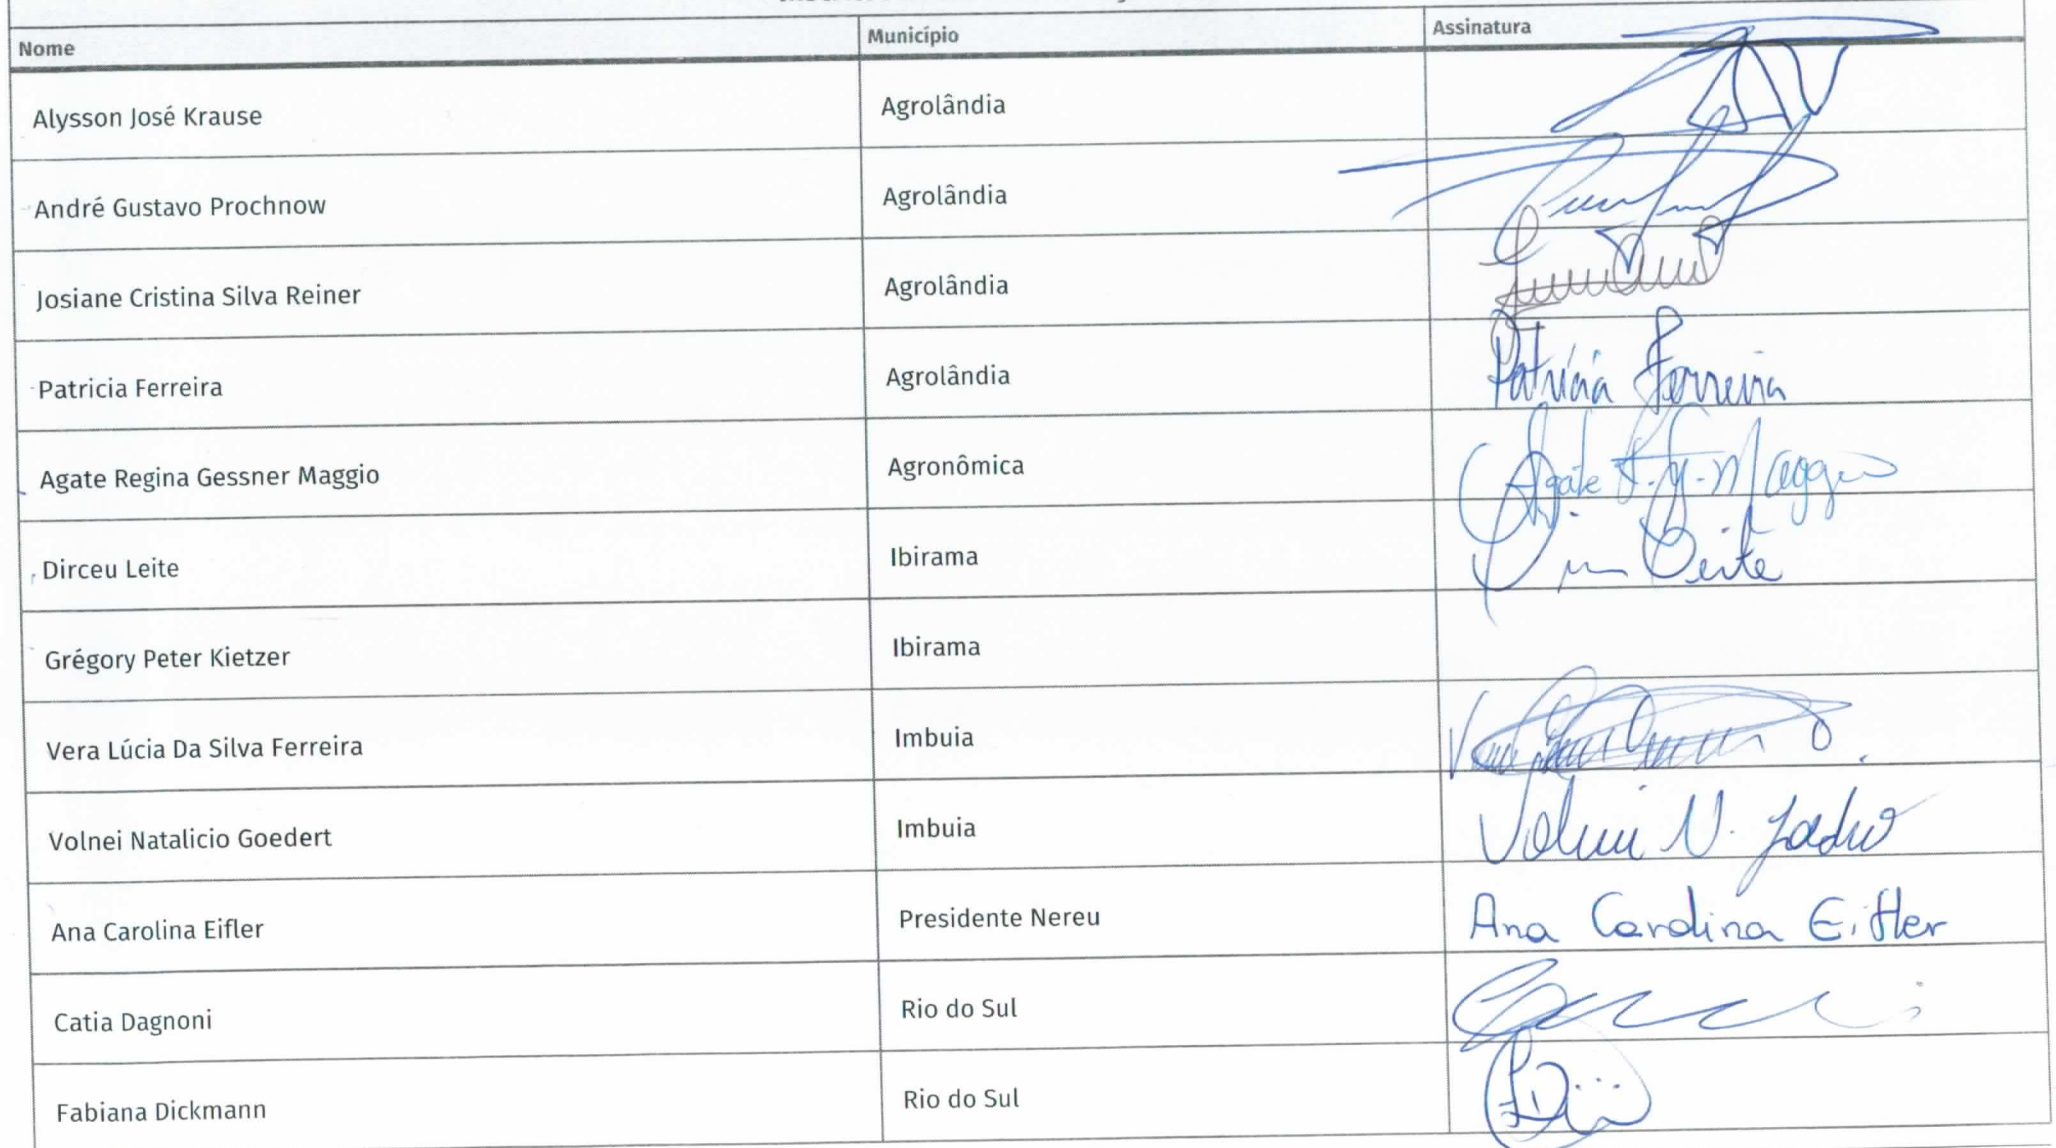 Nome Município Assinatura
Alysson José Krause Agrolândia
André Gustavo Prochnow Agrolândia
Josiane Cristina Silva Reiner Agrolândia
Patricia Ferreira Agrolândia Patrícia Ferreira
Agate Regina Gessner Maggio Agronômica Agate R. G. Maggio
Dirceu Leite Ibirama Leite
Grégory Peter Kietzer Ibirama
Vera Lúcia Da Silva Ferreira Imbuia
Volnei Natalicio Goedert Imbuia Volnei N.
Ana Carolina Eifler Presidente Nereu Ana Carolina Eifler
Catia Dagnoni Rio do Sul
Fabiana Dickmann Rio do Sul